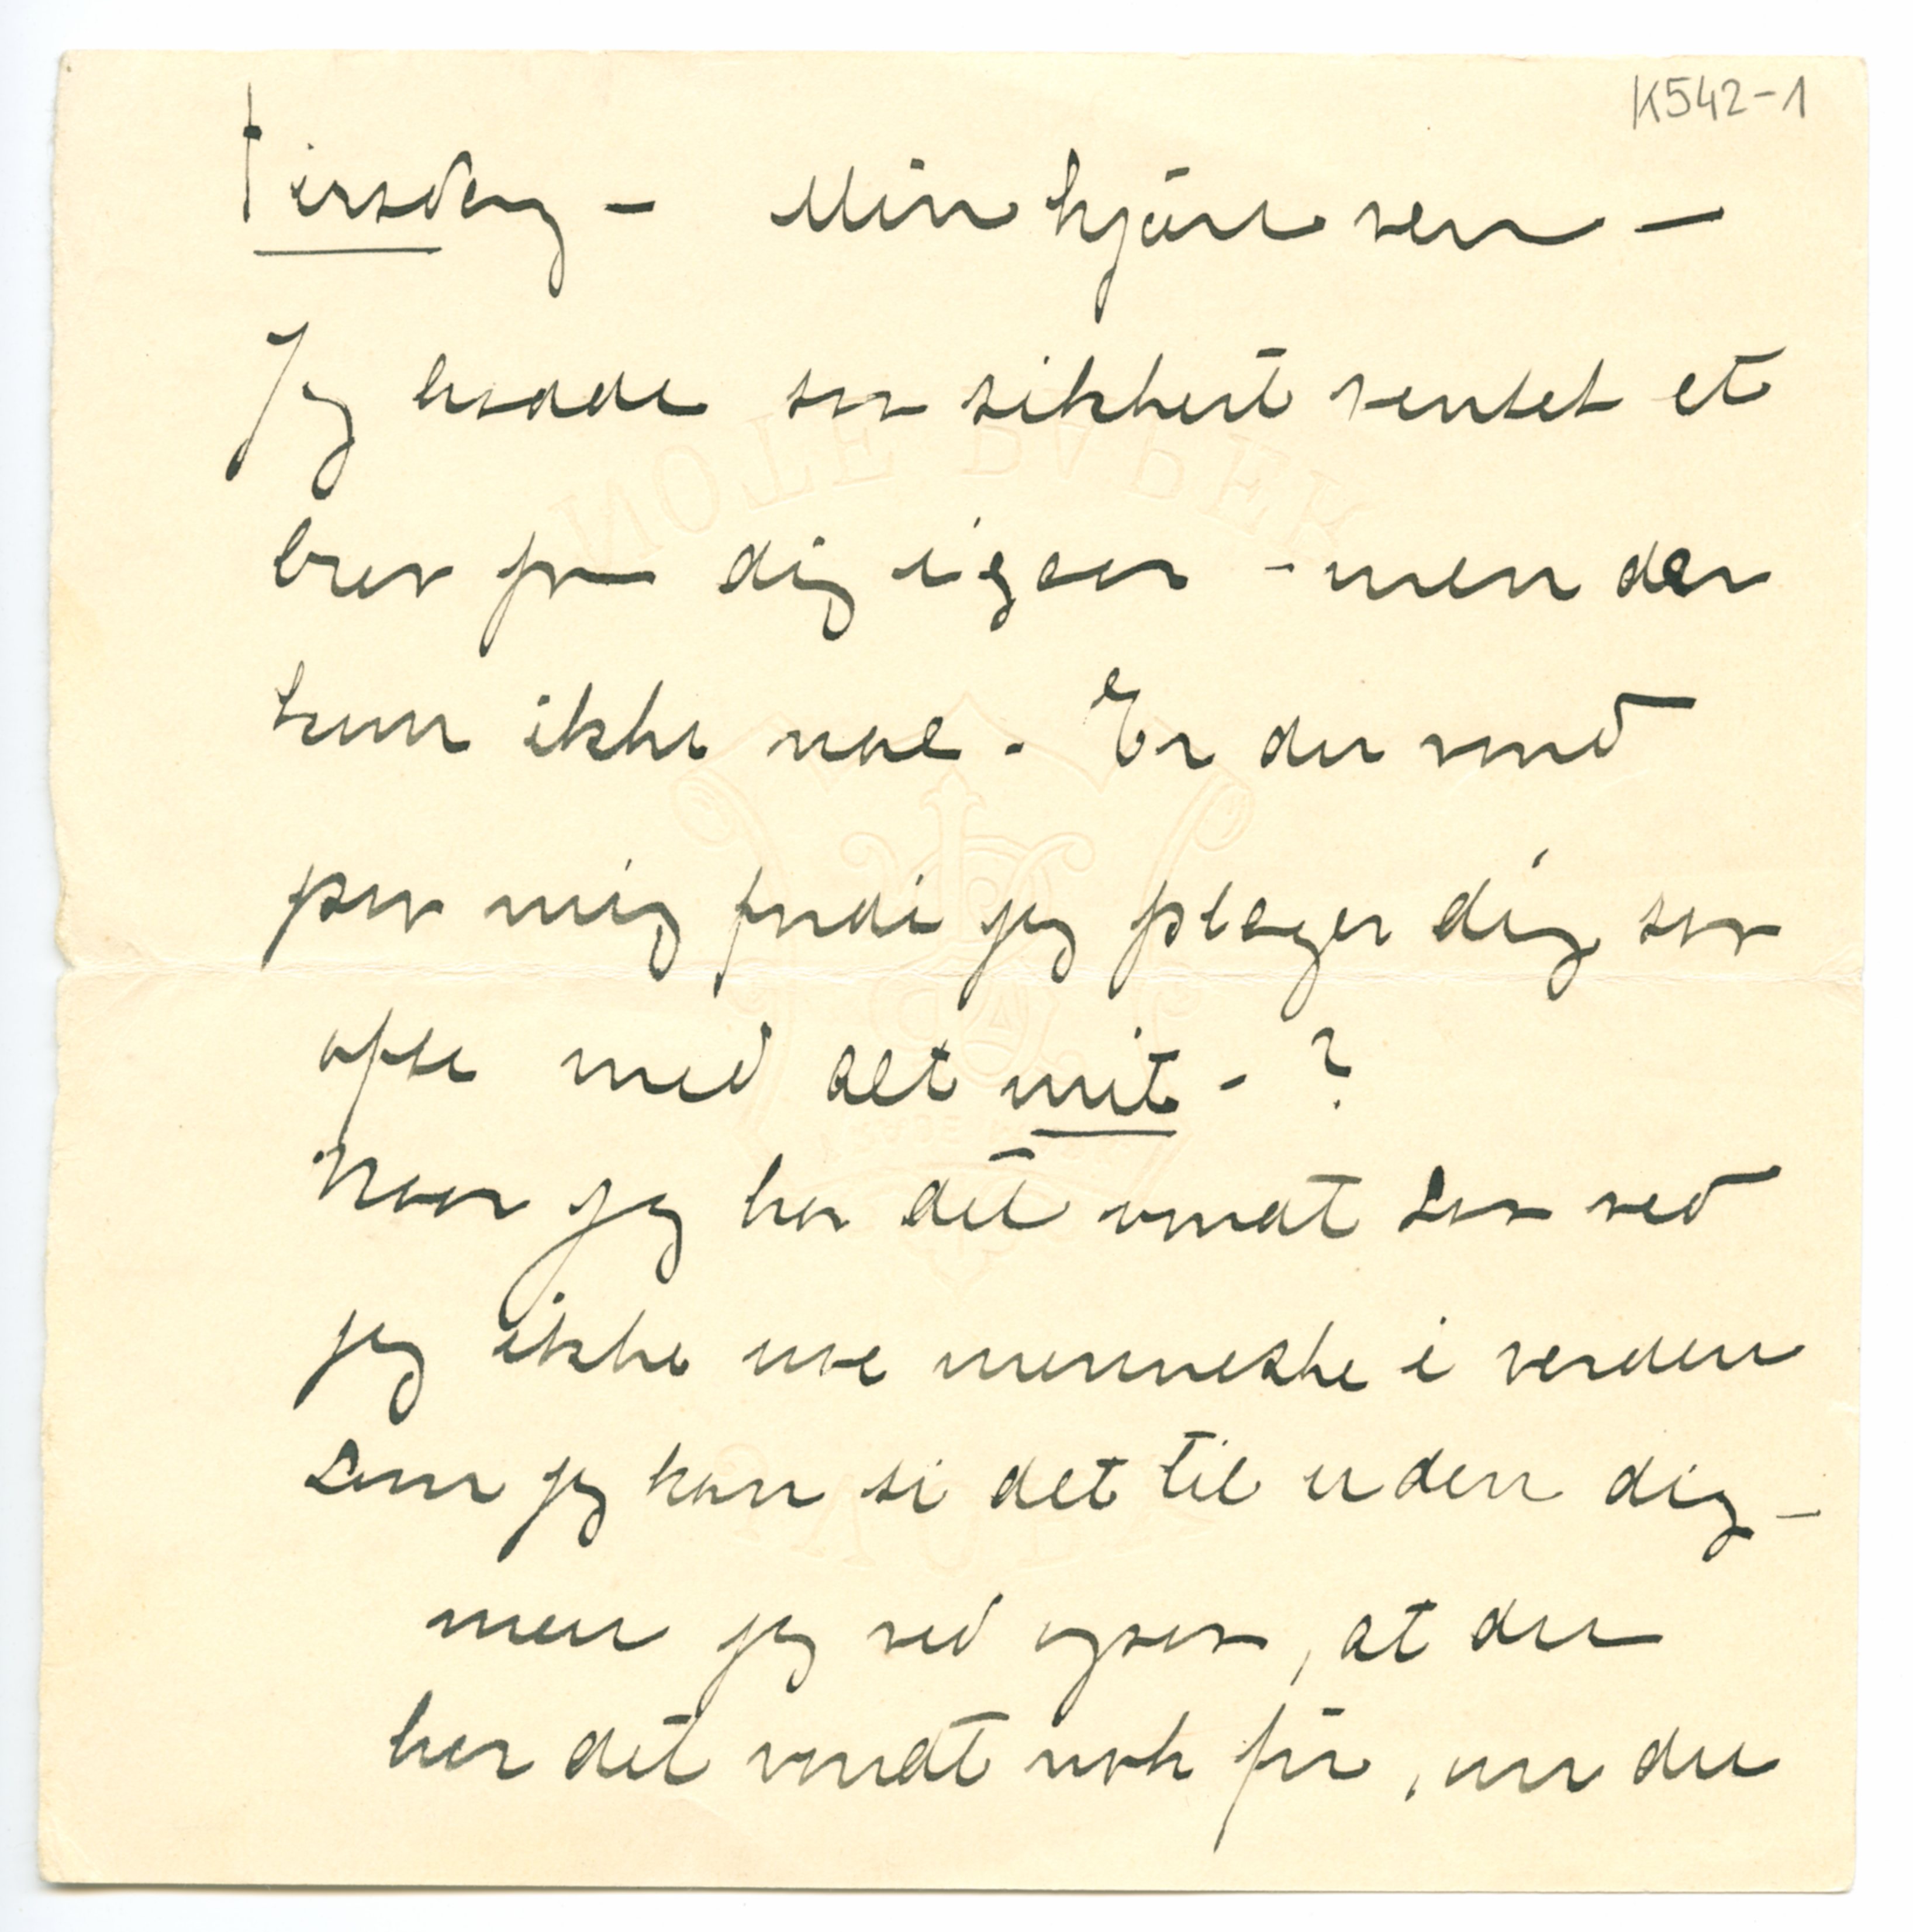 K542-1
Tirsdag – Min kjære ven –
Jeg havde saa sikkert ventet et
brev fra dig igaar – men der
kom ikke noe – Er du vond
paa mig fordi jeg plager dig saa
ofte med alt mit – ?
Naar jeg har det vondt saa ved
jeg ikke noe menneske i verden
som jeg kan si det til uden dig –
men jeg ved ogsaa, at du
har det vondt nok før, om du
NOTE PAPER